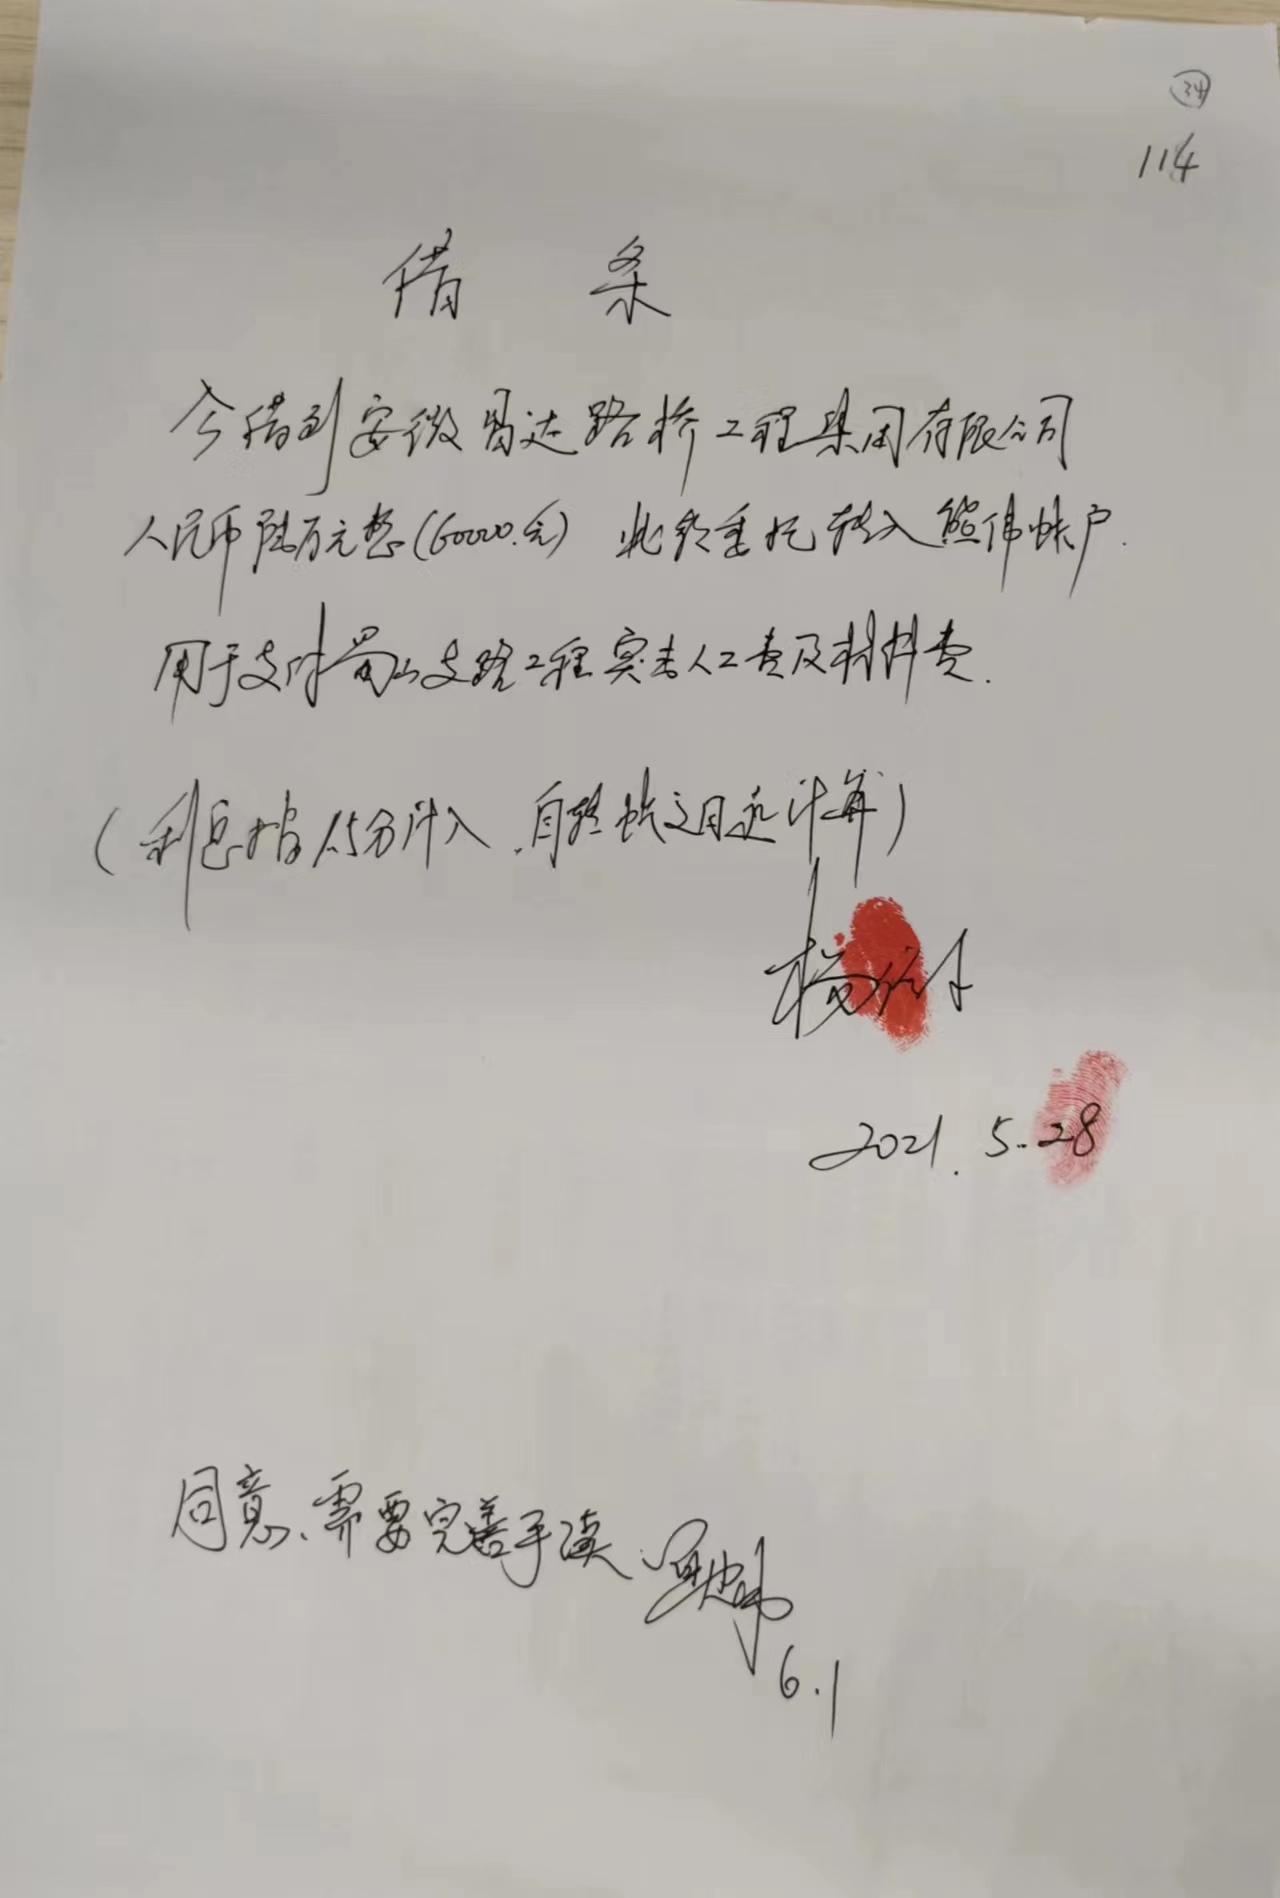 34
114
借 条
今借到安徽昌达路桥工程集团有限公司
人民币陆万元整(60000.元) 此款委托转入熊伟帐户.
用于支付蜀山支路工程突击人工费及材料费.
(利息按1.5分计入.自转帐之日起计算)
杨
2021.5.28
同意、需要完善手续.
6.1